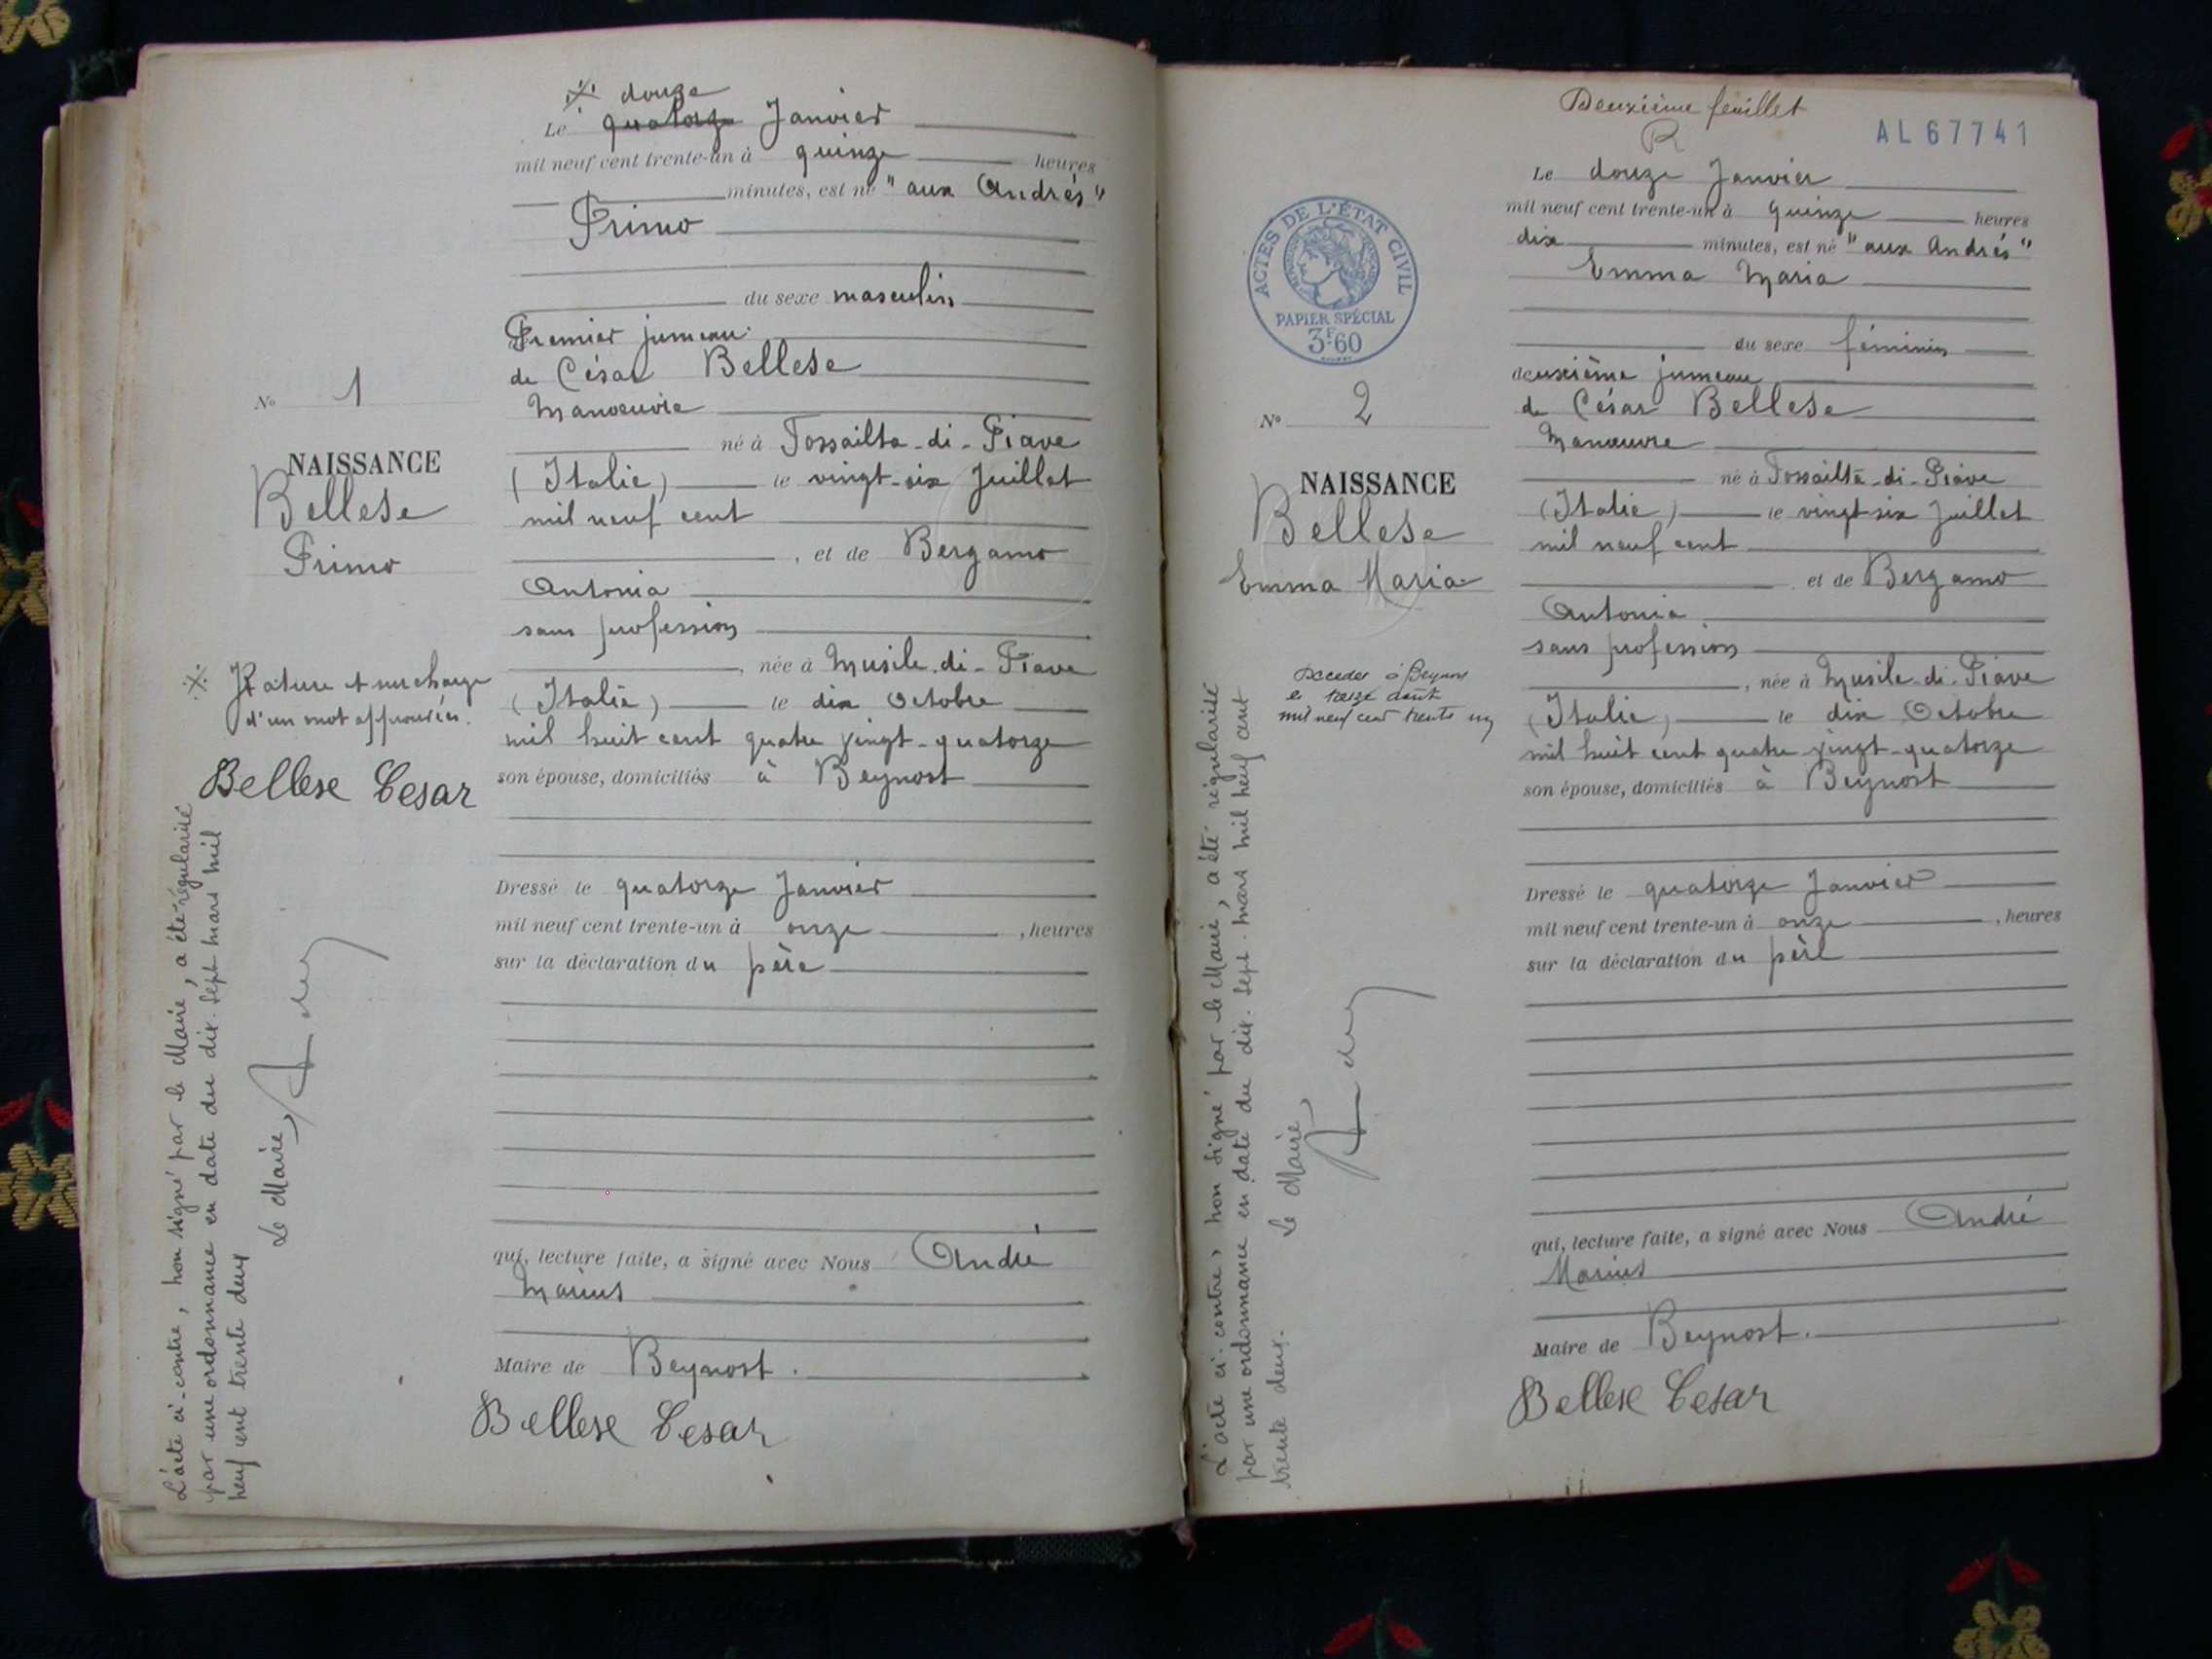 douze
Le quatorze Janvier
mil neuf cent trente-un à quinze heures
minutes, est né "aux Andrés"
Primo
du sexe masculin
Premier jumeau
de César Bellese
Manoeuvre
né à Fossailta-di-Piave
(Italie) le vingt-six Juillet
mil neuf cent
, et de Bergamo
Antonia
sans profession
, née à Musile-di-Piave
(Italie) le dix Octobre
mil huit cent quatre vingt-quatorze
son épouse, domiciliés à Beynost
Dressé le quatorze Janvier
mil neuf cent trente-un à onze , heures
sur la déclaration du père
qui, lecture faite, a signé avec Nous André
Marius
Maire de Beynost.
Bellese Cesar
No 1
NAISSANCE
Bellese
Primo
Rature et surcharge
d'un mot approuvées.
Bellese Cesar
L'acte ci-contre, non signé par le Maire, a été régularisé
par une ordonnance en date du dix-sept mars mil
neuf cent trente deux
Le Maire,
Deuxième feuillet
R
AL 67741
Le douze Janvier
mil neuf cent trente-un à quinze heures
dix minutes, est né "aux Andrés"
Emma Maria
du sexe féminin
deuxième jumeau
de César Bellese
Manœuvre
né à Fossailta-di-Piave
(Italie) le vingt-six Juillet
mil neuf cent
, et de Bergamo
Antonia
sans profession
, née à Musile-di-Piave
(Italie) le dix Octobre
mil huit cent quatre-vingt-quatorze
son épouse, domiciliés à Beynost
Dressé le quatorze Janvier
mil neuf cent trente-un à onze , heures
sur la déclaration du père
qui, lecture faite, a signé avec Nous André
Marius
Maire de Beynost.
Bellese Cesar
ACTES DE L'ÉTAT CIVIL
PAPIER SPÉCIAL
3F60
No 2
NAISSANCE
Bellese
Emma Maria
Decedee à Beynost
le treize août
mil neuf cent trente un
L'acte ci-contre, non signé par le Maire, a été régularisé
par une ordonnance en date du dix-sept mars mil neuf cent
trente deux.
Le Maire,